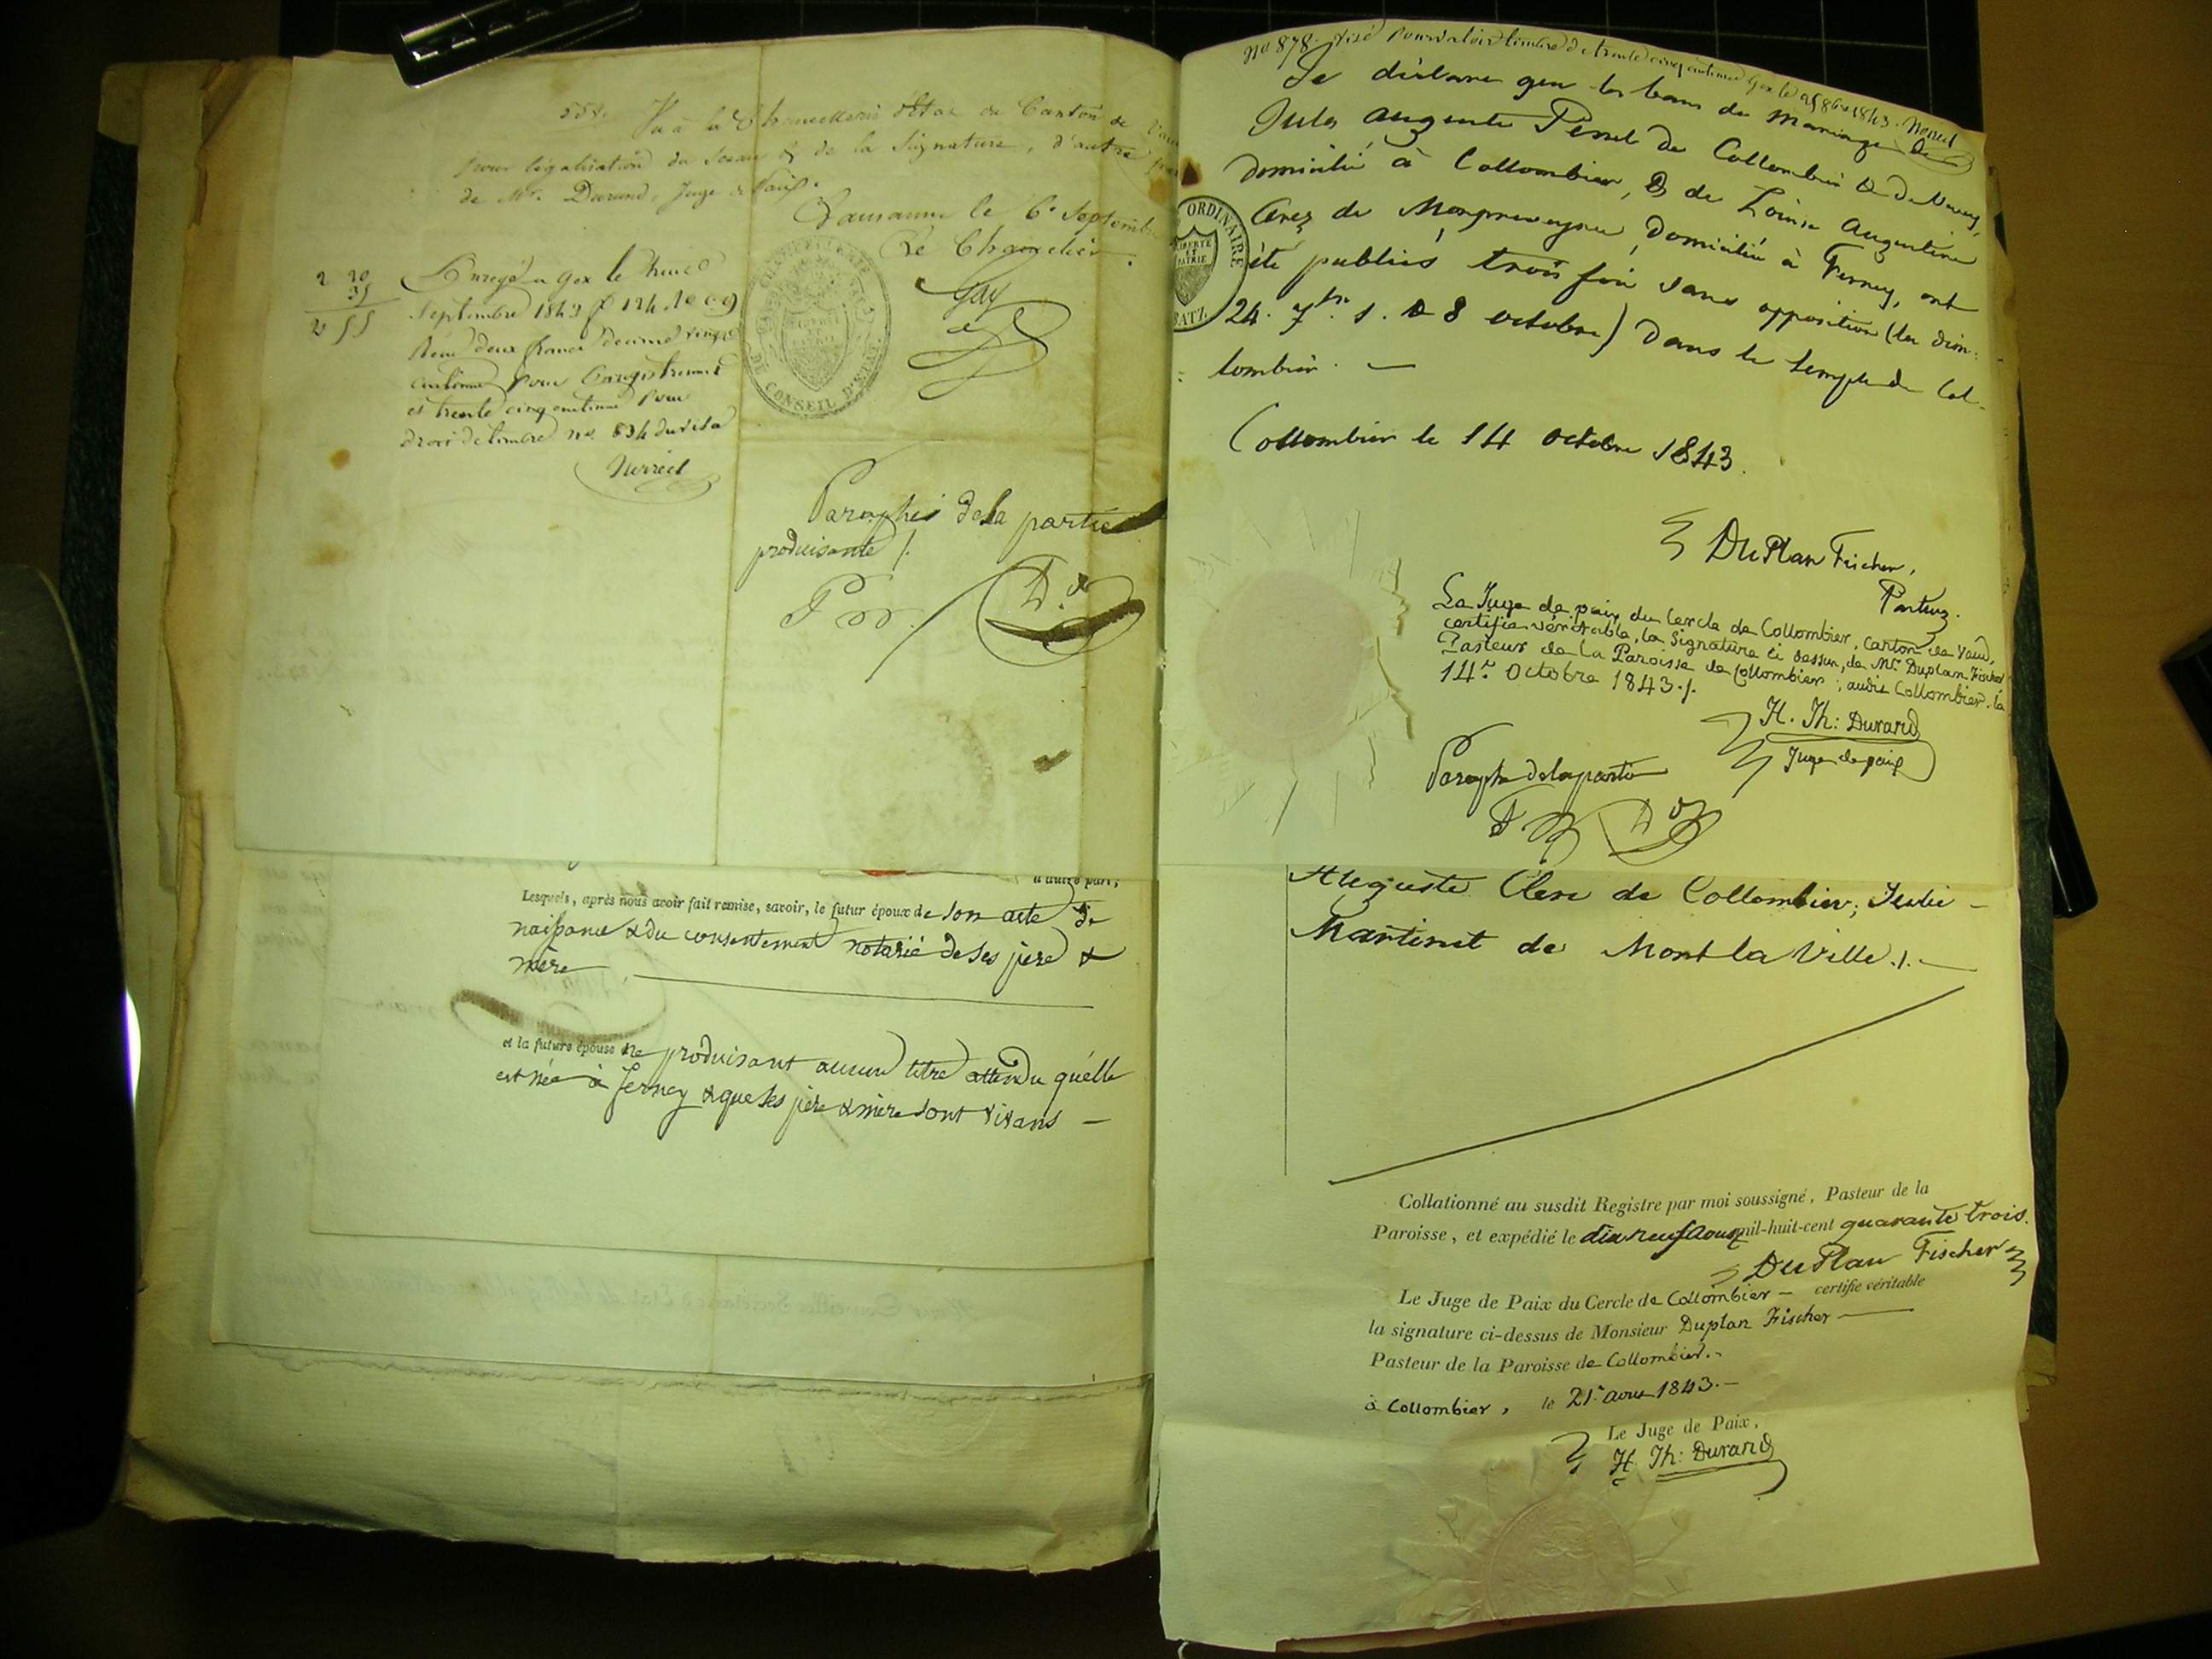 558. Vu à la Chancellerie d'Etat du Canton de Vaud
pour légalisation du Sceau & de la Signature, d'autre part
de Mr. Durand, Juge de Paix.
Lausanne le 6e Septembre
Le Chancelier.
Gay
CONSEIL D'ETAT
LIBERTÉ ET PATRIE
2 20
35
2 55
Enregé a Gex le
Septembre 1843 f 124
Reçu deux francs decime vingt
centimes pour Enregistrement
et trente cinq centimes pour
droit de timbre no. 834 du visa
Paraphés de la partie
produisante /.
à autre part;
Lesquels, après nous avoir fait remise, savoir, le futur époux de son acte de
naissance & du consentement notarié de ses père &
mère
et la future épouse ne produisant aucun titre attendu qu'elle
est née à Ferney & que ses père & mère sont vivans —
No 878. Visé pour valoir timbre de trente cinq centimes Gex le 25 8bre 1843.
Je déclare que les bans de mariage de
Jules Auguste de Collombier & de
domicilié à Collombier, & de Louise Augustine
de Monpreveyres, domiciliée à Ferney, ont
été publiés trois fois sans opposition (les dim:
24. 7br. 1. & 8 octobre) dans le temple de Col-
lombier. —
ORDINAIRE
LIBERTÉ ET PATRIE
BATZ
Collombier le 14 octobre 1843.
DuPlan Fischer,
Pasteur.
Le Juge de paix du Cercle de Collombier, Canton de Vaud,
certifie véritable, la Signature ci dessus, de Mr. Duplan Fischer
Pasteur de la Paroisse de Collombier; audit Collombier, le
14e. Octobre 1843./.
H. Th: Durand
Juge de paix
Paraphé de la partie
Auguste Clerc de Collombier; Julie —
Martinet de Mont la Ville./. —
Collationné au susdit Registre par moi soussigné, Pasteur de la
Paroisse, et expédié le dix neuf Aoust mil-huit-cent quarante trois.
DuPlan Fischer
Le Juge de Paix du Cercle de Collombier — certifie véritable
la signature ci-dessus de Monsieur Duplan Fischer —
Pasteur de la Paroisse de Collombier. -
à Collombier, le 21e aout 1843. —
Le Juge de Paix,
H. Th: Durand